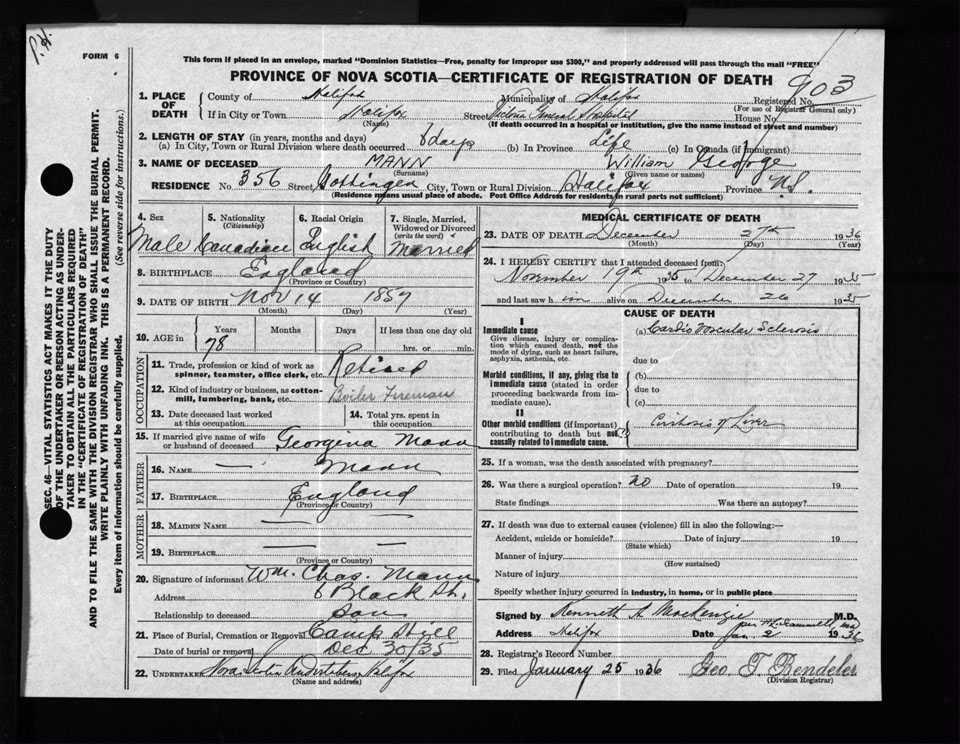 P.H.
FORM 6
This form if placed in an envelope, marked "Dominion Statistics—Free, penalty for improper use $300," and properly addressed will pass through the mail "FREE"
PROVINCE OF NOVA SCOTIA—CERTIFICATE OF REGISTRATION OF DEATH
903
1. PLACE OF DEATH
County of Halifax Municipality of Halifax Registered No.
(For use of Registrar General only)
If in City or Town Halifax Street Victoria General Hospital House No.
(Name) (If death occurred in a hospital or institution, give the name instead of street and number)
2. LENGTH OF STAY (in years, months and days)
(a) In City, Town or Rural Division where death occurred 8 days (b) In Province Life (c) In Canada (if immigrant)
3. NAME OF DECEASED MANN William George
(Surname) (Given name or names)
RESIDENCE No. 356 Street Gottingen City, Town or Rural Division Halifax Province N.S.
(Residence means usual place of abode. Post Office Address for residents in rural parts not sufficient)
4. Sex 5. Nationality (Citizenship) 6. Racial Origin 7. Single, Married, Widowed or Divorced (write the word)
Male Canadian English Married
8. BIRTHPLACE England
(Province or Country)
9. DATE OF BIRTH Nov 14 1857
(Month) (Day) (Year)
10. AGE in Years Months Days If less than one day old
78 hrs. or min.
OCCUPATION
11. Trade, profession or kind of work as spinner, teamster, office clerk, etc. Retired
12. Kind of industry or business, as cotton-mill, lumbering, bank, etc. Boiler Fireman
13. Date deceased last worked at this occupation
14. Total yrs. spent in this occupation
15. If married give name of wife or husband of deceased Georgina Mann
FATHER
16. NAME — Mann
17. BIRTHPLACE England
(Province or Country)
MOTHER
18. MAIDEN NAME — —
19. BIRTHPLACE — —
(Province or Country)
20. Signature of informant Wm. Chas. Mann
Address 6 Black St.
Relationship to deceased Son
21. Place of Burial, Cremation or Removal Camp Hill
Date of burial or removal Dec 30/35
22. UNDERTAKER Nova Scotia Undertaking Halifax
(Name and address)
MEDICAL CERTIFICATE OF DEATH
23. DATE OF DEATH December 27th 1936
(Month) (Day) (Year)
24. I HEREBY CERTIFY that I attended deceased from:
November 19th 1935 to December 27 1935
and last saw him alive on December 26 1935
CAUSE OF DEATH
I
Immediate cause
Give disease, injury or complication which caused death, not the mode of dying, such as heart failure, asphyxia, asthenia, etc.
(a) Cardio Vascular Sclerosis
due to
Morbid conditions, if any, giving rise to immediate cause (stated in order proceeding backwards from immediate cause).
(b)
due to
(c)
II
Other morbid conditions (if important) contributing to death but not causally related to immediate cause.
Cirrhosis of Liver
25. If a woman, was the death associated with pregnancy?
26. Was there a surgical operation? no Date of operation 19
State findings Was there an autopsy?
27. If death was due to external causes (violence) fill in also the following:—
Accident, suicide or homicide? Date of injury 19
(State which)
Manner of injury
(How sustained)
Nature of injury
Specify whether injury occurred in industry, in home, or in public place
Signed by Kenneth A. MacKenzie M.D.
per
Address Halifax Date Jan. 2 1936
28. Registrar's Record Number
29. Filed January 25 1936 Geo. T. Bendeler
(Division Registrar)
SEC. 46—VITAL STATISTICS ACT MAKES IT THE DUTY
OF THE UNDERTAKER OR PERSON ACTING AS UNDER-
TAKER TO OBTAIN ALL THE PARTICULARS REQUIRED
IN THE "CERTIFICATE OF REGISTRATION OF DEATH"
AND TO FILE THE SAME WITH THE DIVISION REGISTRAR WHO SHALL ISSUE THE BURIAL PERMIT.
WRITE PLAINLY WITH UNFADING INK. THIS IS A PERMANENT RECORD.
Every item of information should be carefully supplied. (See reverse side for instructions.)